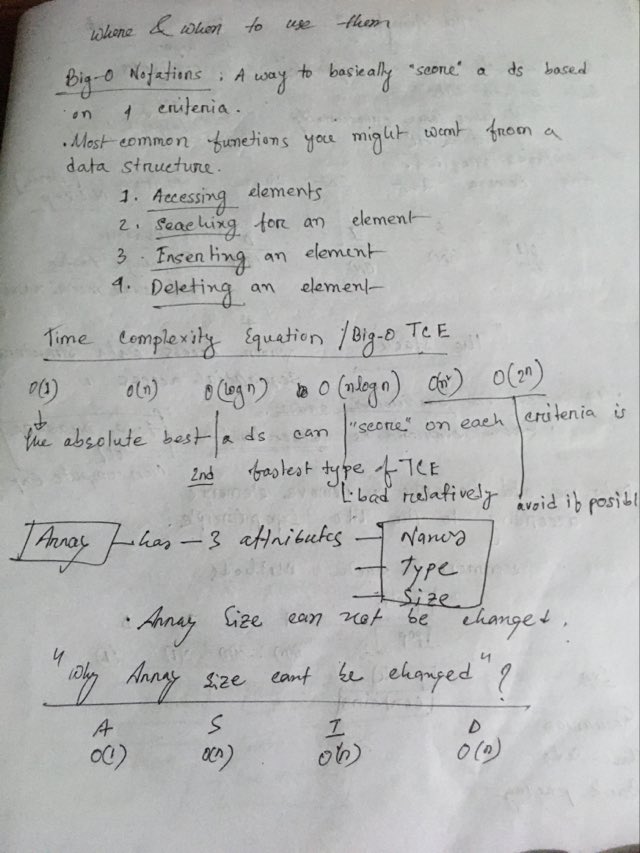 where & when to use them
Big-O Notations : A way to basically "score" a ds based
on 4 criteria.
• Most common functions you might want from a
data structure.
1. Accessing elements
2. Seaching for an element
3. Inserting an element
4. Deleting an element
Time complexity Equation / Big-O TCE
O(1) O(n) O(logn) O(nlogn) O(n²) O(2ⁿ)
the absolute best a ds can "score" on each criteria is
2nd fastest type of TCE
bad relatively avoid if posibl
Array has 3 attributes Name
Type
Size
• Array Size can not be changed.
"Why Array size cant be changed"?
A S I D
O(1) O(n) O(n) O(n)